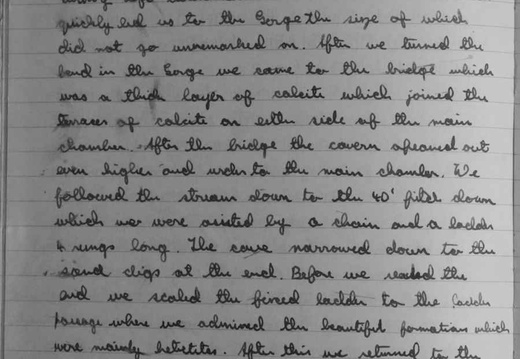 quickly led us to the Gorge the size of which
did not go unremarked on. After we turned the
bend in the Gorge we came to the bridge which
was a thick layer of calcite which joined the
terraces of calcite on either side of the main
chamber. After the bridge the cavern opened out
even higher and wider to the main chamber. We
followed the stream down to the 40' pitch down
which we were assisted by a chain and a ladder
4 rungs long. The cave narrowed down to the
sand digs at the end. Before we reached the
end we scaled the fixed ladder to the ladder
passage where we admired the beautiful formations which
were mainly helictites. After this we returned to the